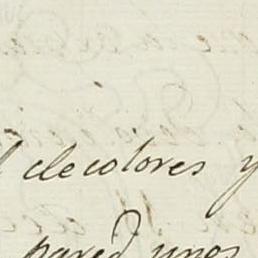 decolores y
pared unos